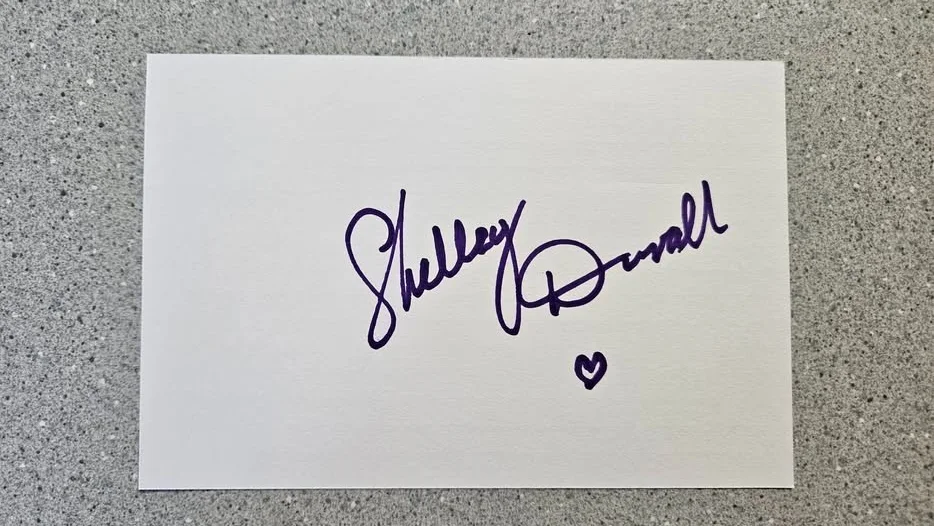 Shelley Duvall
♡